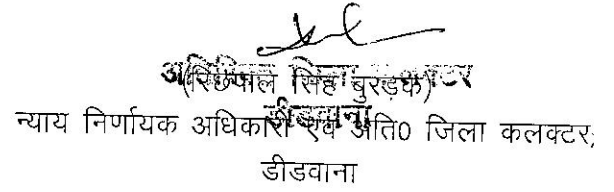 (रिछपाल सिंह बुरड़क)
न्याय निर्णायक अधिकारी एवं अति0 जिला कलक्टर,
डीडवाना